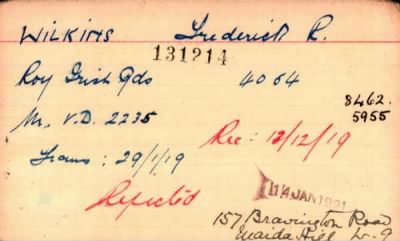 WILKINS Frederick R.
131214
Roy Irish Gds 4064
8462.
5955
Mr. V.D. 2235
Rec: 12/12/19
Trans: 29/1/19
Rejected
14 JAN 1921
157 Bravington Road
Maida Hill W.9